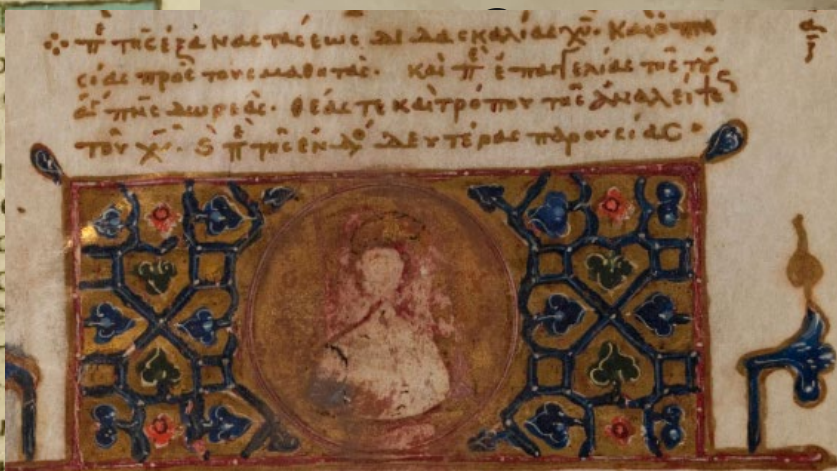 π̅ε̅ τῆς ἐξ ἀναστάσεως διδασκαλίας χυ̅. Καὶ ὀπτα
σίας πρὸς τοὺς μαθητάς. καὶ π̅ε̅ ἐπαγγελίας τῆς τοῦ
ἁγ πνς δωρεᾶς. θέας τε καὶ τρόπου τῆς ἀναλείψς
τοῦ χυ̅. ϛ π̅ε̅ τῆς ἐνδό δευτέρας παρουσίας